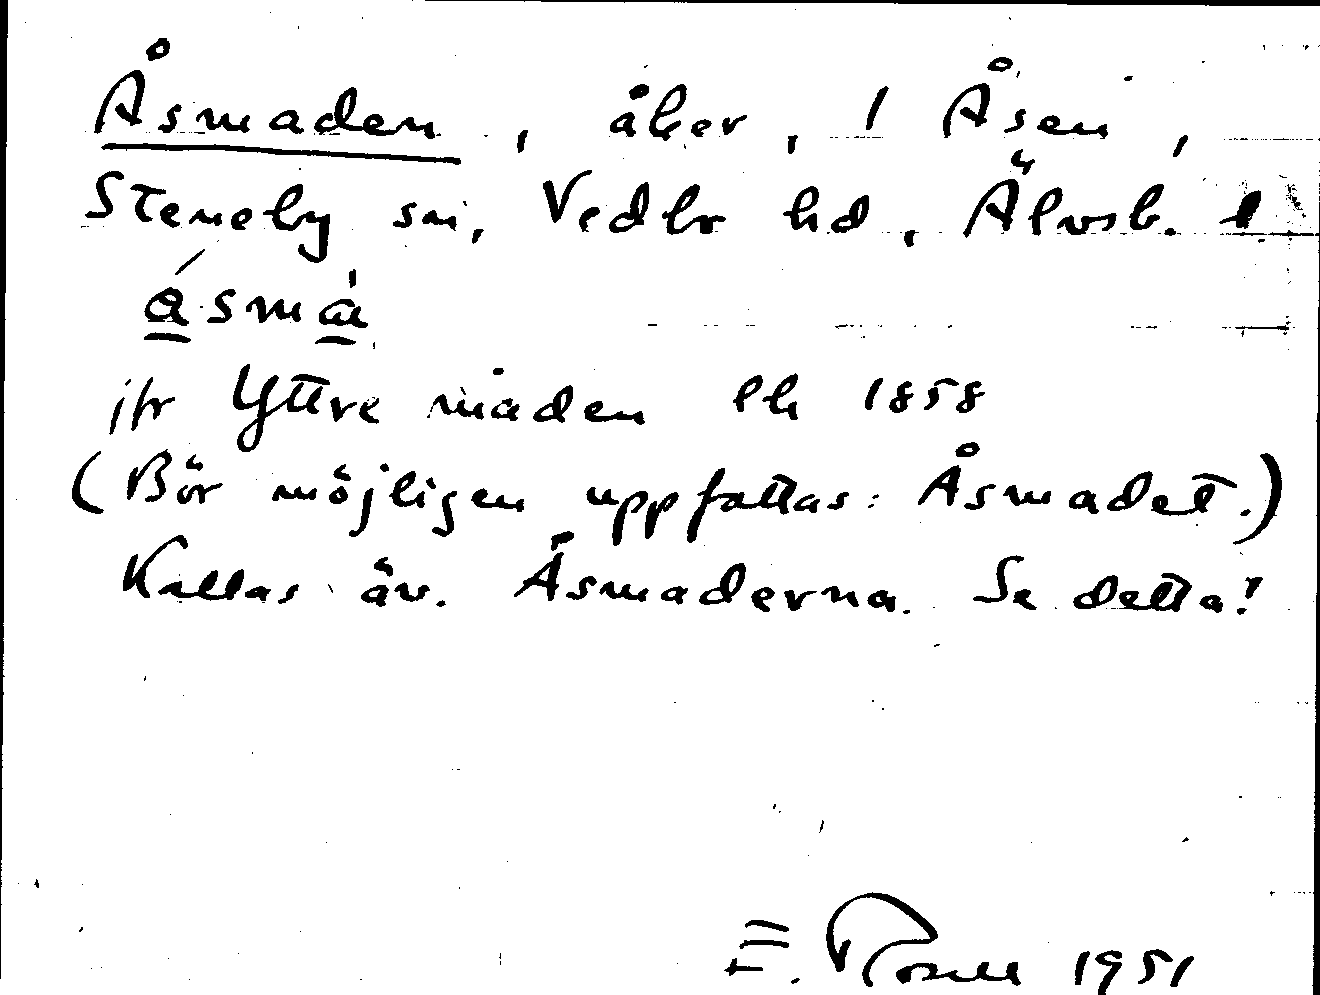 Åsmaden, åker, 1 Åsen,
Steneby sn, Vedbo hd, Älvsb. l
åsmá
jfr Yttre maden Lh 1858
(Bör möjligen uppfattas: Åsmadet.)
Kallas äv. Åsmaderna. Se detta!
E. Rosell 1951